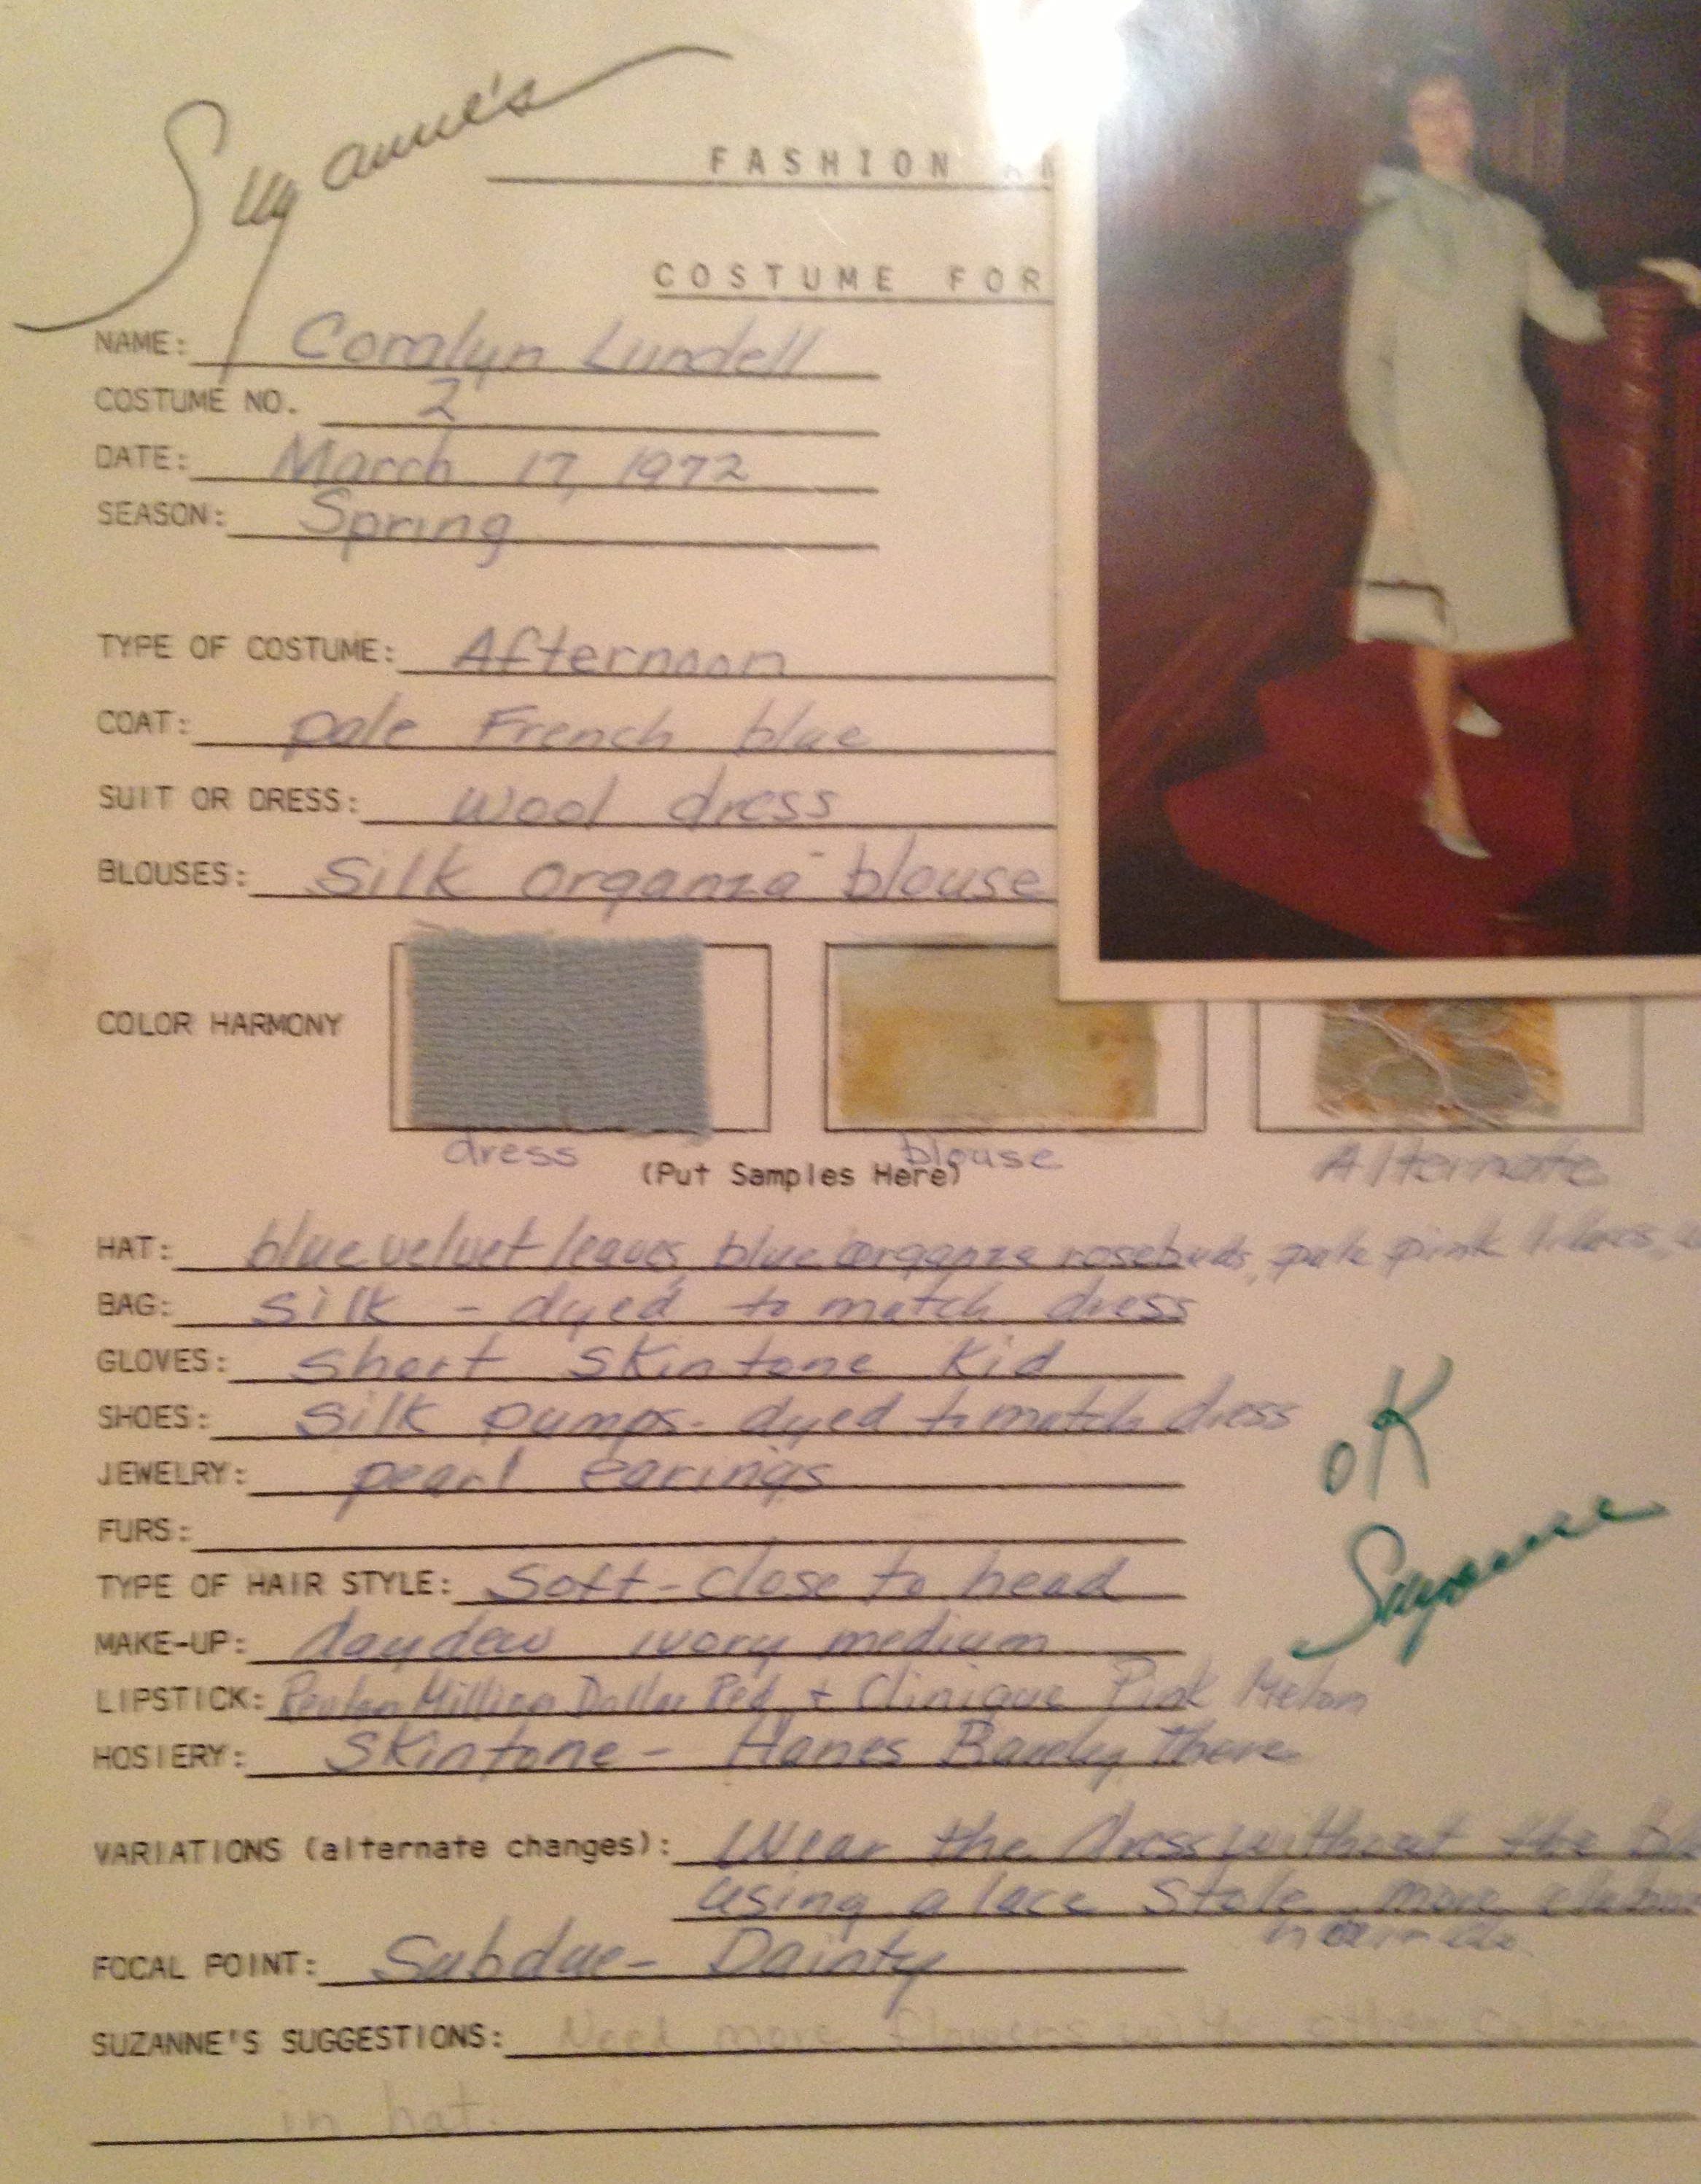 Suzanne's
FASHION
COSTUME FOR
NAME: Coralyn Lundell
COSTUME NO. 2
DATE: March 17, 1972
SEASON: Spring
TYPE OF COSTUME: Afternoon
COAT: pale French blue
SUIT OR DRESS: wool dress
BLOUSES: silk organza blouse
COLOR HARMONY
dress blouse Alternate
(Put Samples Here)
HAT: blue velvet leaves, blue organza rosebuds, pale pink lilacs,
BAG: silk - dyed to match dress
GLOVES: short skintone kid
SHOES: silk pumps - dyed to match dress
JEWELRY: pearl earings
FURS:
OK
Suzanne
TYPE OF HAIR STYLE: soft - close to head
MAKE-UP: daydew ivory medium
LIPSTICK: Revlon Million Dollar Red + Clinique Pink Melon
HOSIERY: Skintone - Hanes Barely There
VARIATIONS (alternate changes): Wear the dress without the
using a lace stole, more
hairdo.
FOCAL POINT: Subdue - Dainty
SUZANNE'S SUGGESTIONS: Need more flowers with other
in hat.